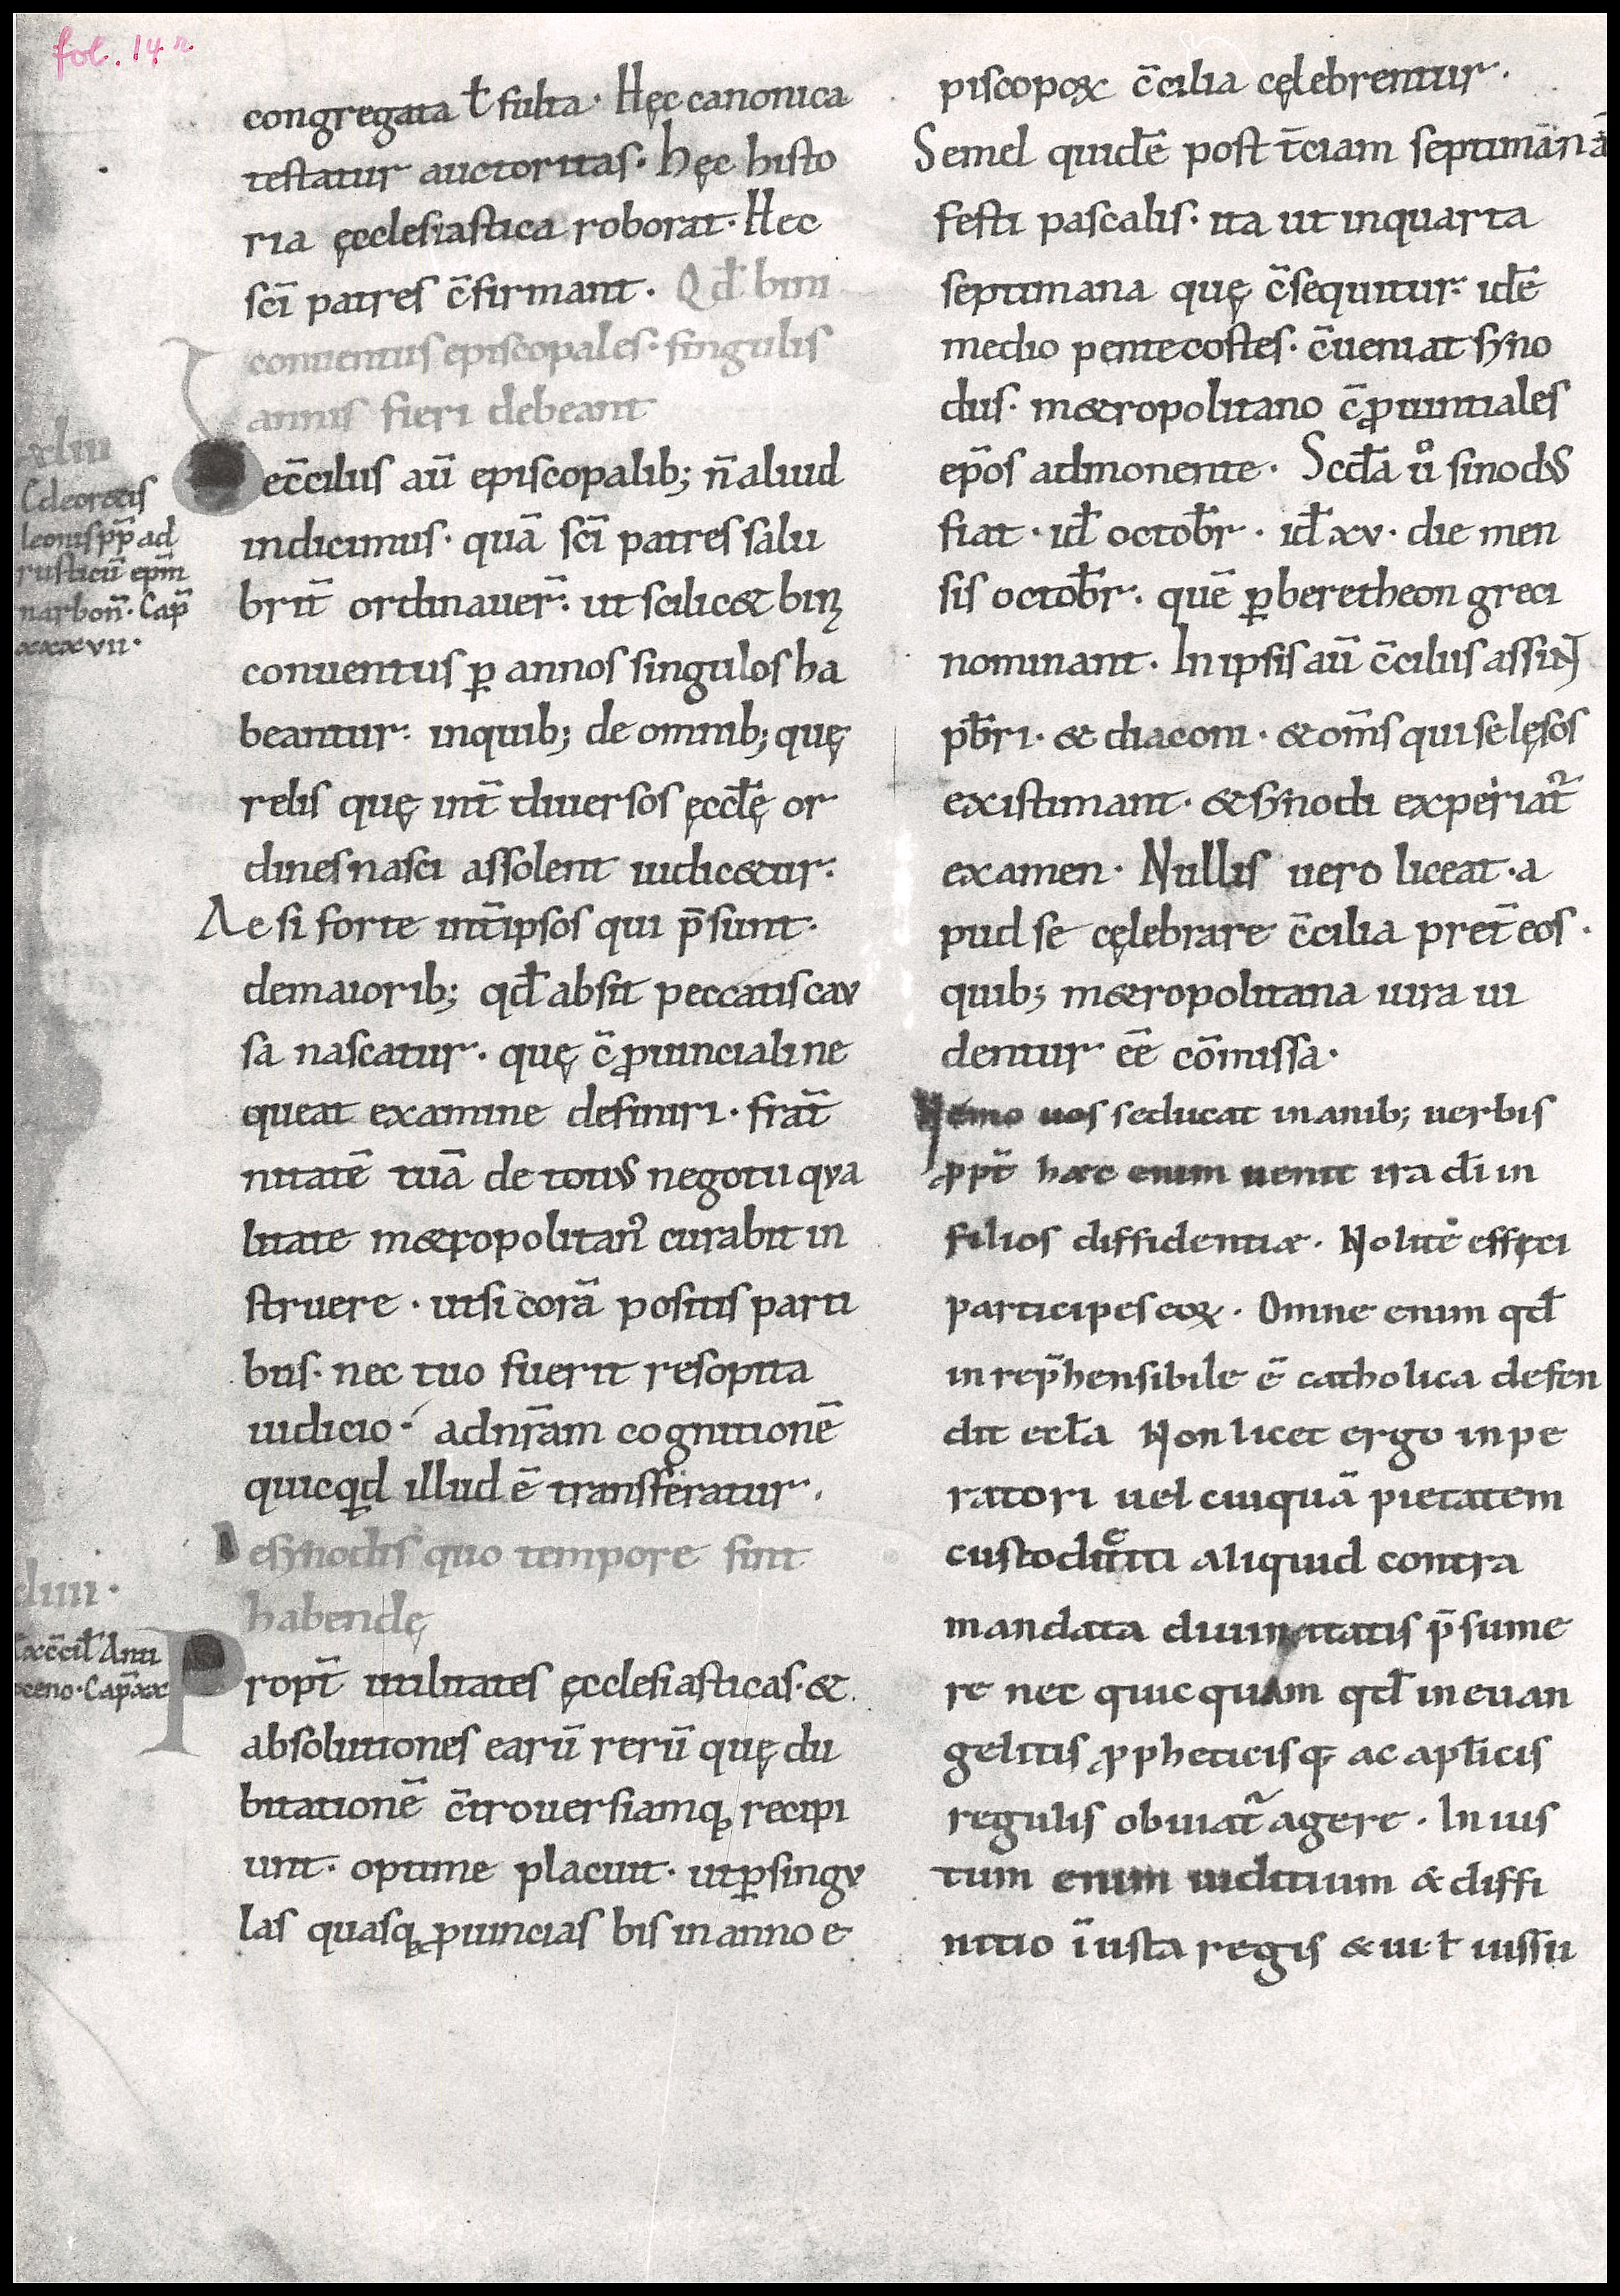 fol. 14 r.
congregata ł fulta· Hęc canonica
testatur auctoritas· hęc histo
ria ęcclesiastica roborat· Hec
sc̄i patres c̄firmant· Qđ bini
conuentus episcopales· singulis
annis fieri debeant
ec̄ciliis aū episcopalib; n̄ aliud
indicimus· quā sc̄i patres salu
brit̄ ordinauer̄· ut scilic& binę
conuentus ꝑ annos singulos ha
beantur· inquib; de omnib; quę
relis quę int̄ diuersos ęccłę or
dines nasci assolent iudic&ur·
Ac si forte int̄ ipsos qui p̄sunt·
demaiorib; qđ absit peccatis cau
sa nascatur· quę c̄ ꝓuinciali ne
queat examine definiri· frat̄
nitatē tuā de toti᷒ negotii qua
litate m&ropolitan̄ curabit in
struere· utsi corā positis parti
bus· nec tuo fuerit resopita
iudicio· adnr̄am cognitionē
quicqid illud ē transferatur·
esynodis quo tempore sint
habendę
Propt̄ utilitates ęcclesiasticas· &
absolutiones earū rerū quę du
bitationē c̄trouersiamq; recipi
unt· optime placuit· utꝑ singu
las quasq; ꝓuincias bis in anno e
xliii
Cdecretis
leonis pp̄ ad
rusticū ep̄m
narbon̄· Cap̄
xxxvii·
Anti
ceno· Cap̄ xx
piscopoꝝ c̄cilia cęlebrentur·
Semel quidē post t̄ciam septimanā
festi pascalis· ita ut inquarta
septimana quę c̄sequitur· idē
medio pentecostes· c̄ueniat syno
dus· m&ropolitano c̄ꝓuintiales
ep̄os admonente· Scđa uº sinodus
fiat· iđ octobr̄· iđ xv· die men
sis octobr̄· quē ꝑberetheon greci
nominant· In ipsis aū c̄ciliis assint
pb̄ri· & diaconi· & om̄s qui se lęsos
existimant· & synodi experiat̄
examen· Nullis uero liceat· a
pud se cęlebrare c̄cilia pret̄ eos·
quib; m&ropolitana iura ui
dentur eē cōmissa·
Nemo uos seducat inanib; uerbis
ꝓpt̄ hæc enim uenit ira dī in
filios diffidentiæ· Nolite effici
participes eoꝝ· Omne enim qđ
inrep̄hensibile ē catholica defen
dit eccła Non licet ergo inpe
ratori uel cuiquā pietatem
custodienti aliquid contra
mandata diuinitatis p̄sume
re nec quicquam qđ in euan
gelitis ꝓpheticisq; ac apłicis
regulis obuiat̄ agere· Inius
tum enim iuditium & diffi
nitio iniusta regis & ui· ł iussu